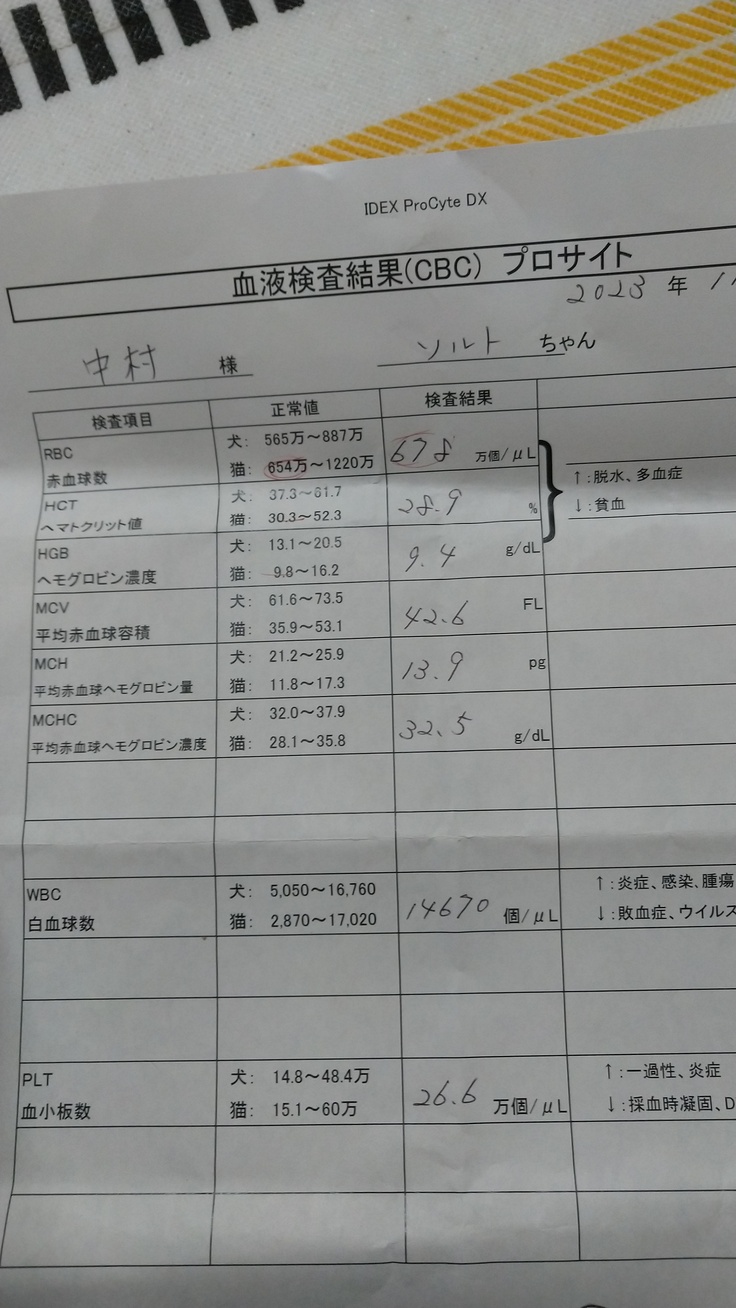 IDEX ProCyte DX
血液検査結果(CBC) プロサイト
2023 年 11
中村 様 ソルト ちゃん
検査項目 正常値 検査結果
RBC 犬: 565万～887万
赤血球数 猫: 654万～1220万 678 万個/μL
↑:脱水、多血症
↓:貧血
HCT 犬: 37.3～61.7
ヘマトクリット値 猫: 30.3～52.3 28.9 %
HGB 犬: 13.1～20.5
ヘモグロビン濃度 猫: 9.8～16.2 9.4 g/dL
MCV 犬: 61.6～73.5
平均赤血球容積 猫: 35.9～53.1 42.6 FL
MCH 犬: 21.2～25.9
平均赤血球ヘモグロビン量 猫: 11.8～17.3 13.9 pg
MCHC 犬: 32.0～37.9
平均赤血球ヘモグロビン濃度 猫: 28.1～35.8 32.5 g/dL
WBC 犬: 5,050～16,760 ↑:炎症、感染、腫瘍
白血球数 猫: 2,870～17,020 14670 個/μL ↓:敗血症、ウイルス
PLT 犬: 14.8～48.4万 ↑:一過性、炎症
血小板数 猫: 15.1～60万 26.6 万個/μL ↓:採血時凝固、D